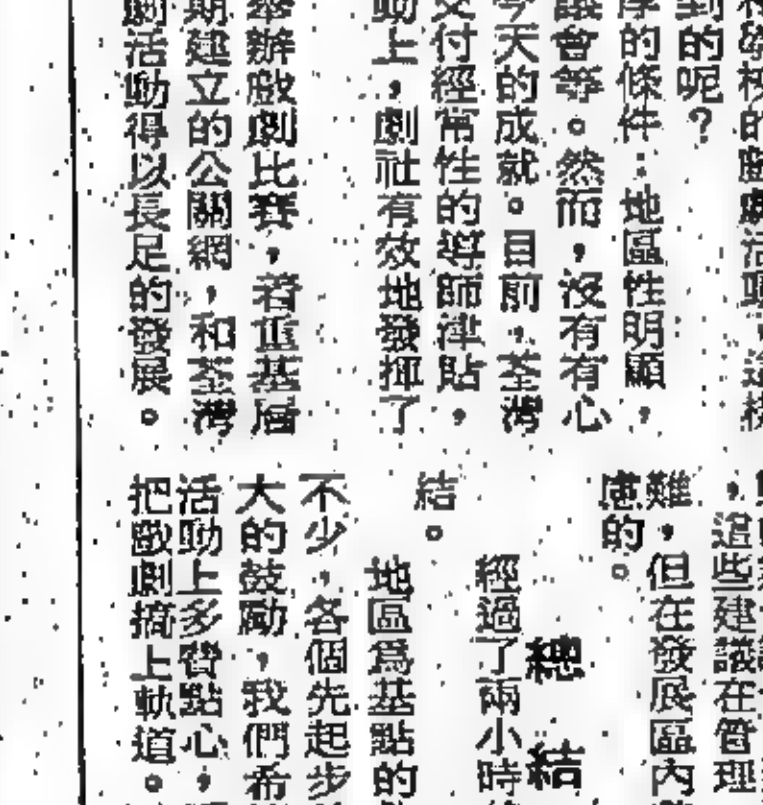 到的呢？
的條件：地區性明顯，
議會等。然而，沒有有心
今天的成就。目前，荃灣
交付經常性的導師津貼，
動上，劇社有效地發揮了
舉辦戲劇比賽，着重基層
期建立的公關網，和荃灣
劇活動得以長足的發展。
，這些建議在管理
難，但在發展區內
慮的。
總結
經過了兩小時
結。
地區為基點的
不少，各個先起步
大的鼓勵，我們希
活動上多費點心，
把戲劇搞上軌道。